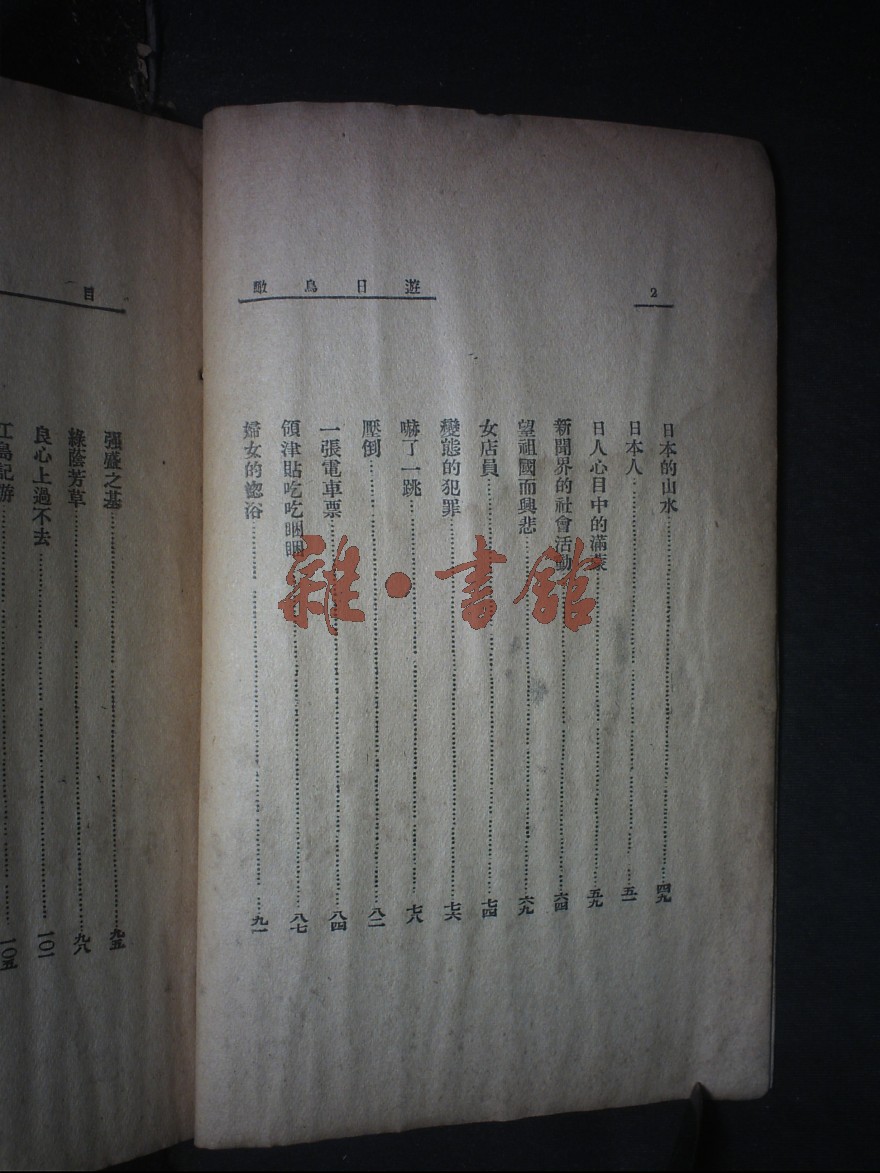 2
遊日鳥瞰
日本的山水 四九
日本人 五一
日人心目中的滿蒙 五九
新聞界的社會活動 六四
望祖國而興悲 六九
女店員 七四
變態的犯罪 七六
嚇了一跳 七八
壓倒 八二
一張電車票 八四
領津貼吃吃睏睏 八七
婦女的窓浴 九一
目
强盛之基 九五
綠蔭芳草 九八
良心上過不去 一〇一
江島記游 一〇五
雜·書館